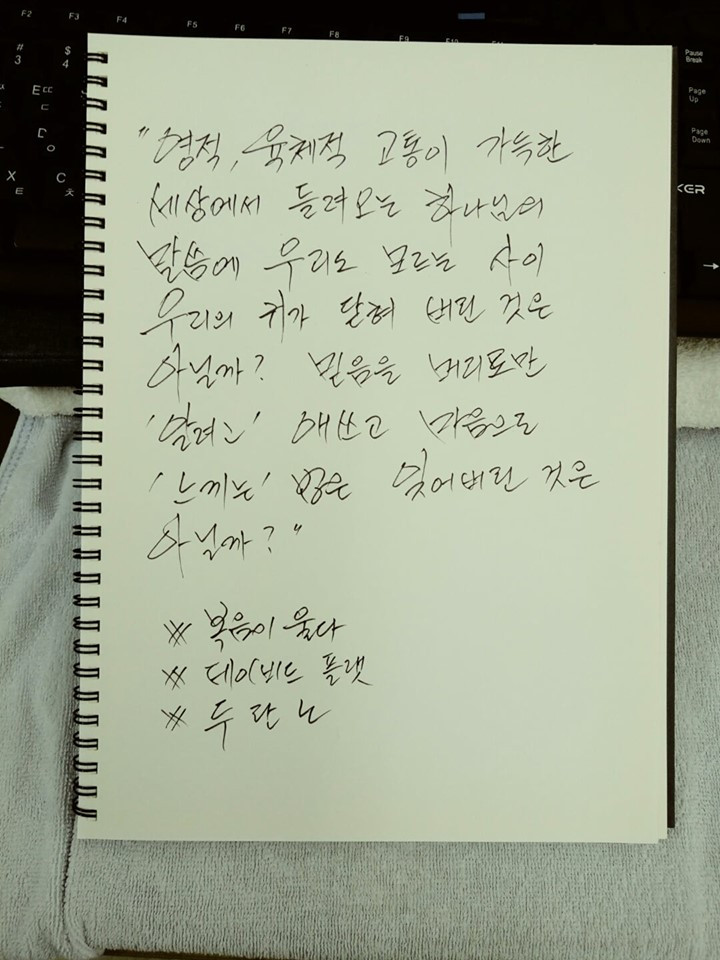 F2 F3 F4 F5 F6 F7 F8 F9 F10
Pause
Break
# 3 $ 4
Page
Up
E ㄸ ㄷ
Page
Down
D ㅇ
X ㅌ C ㅊ
KER
"영적, 육체적 고통이 가득한
세상에서 들려오는 하나님의
말씀에 우리도 모르는 사이
우리의 귀가 닫혀 버린 것은
아닐까? 믿음을 머리로만
'알려고' 애쓰고 마음으로
'느끼는' 법은 잊어버린 것은
아닐까?"
※ 복음이 울다
※ 데이비드 플랫
※ 두란노